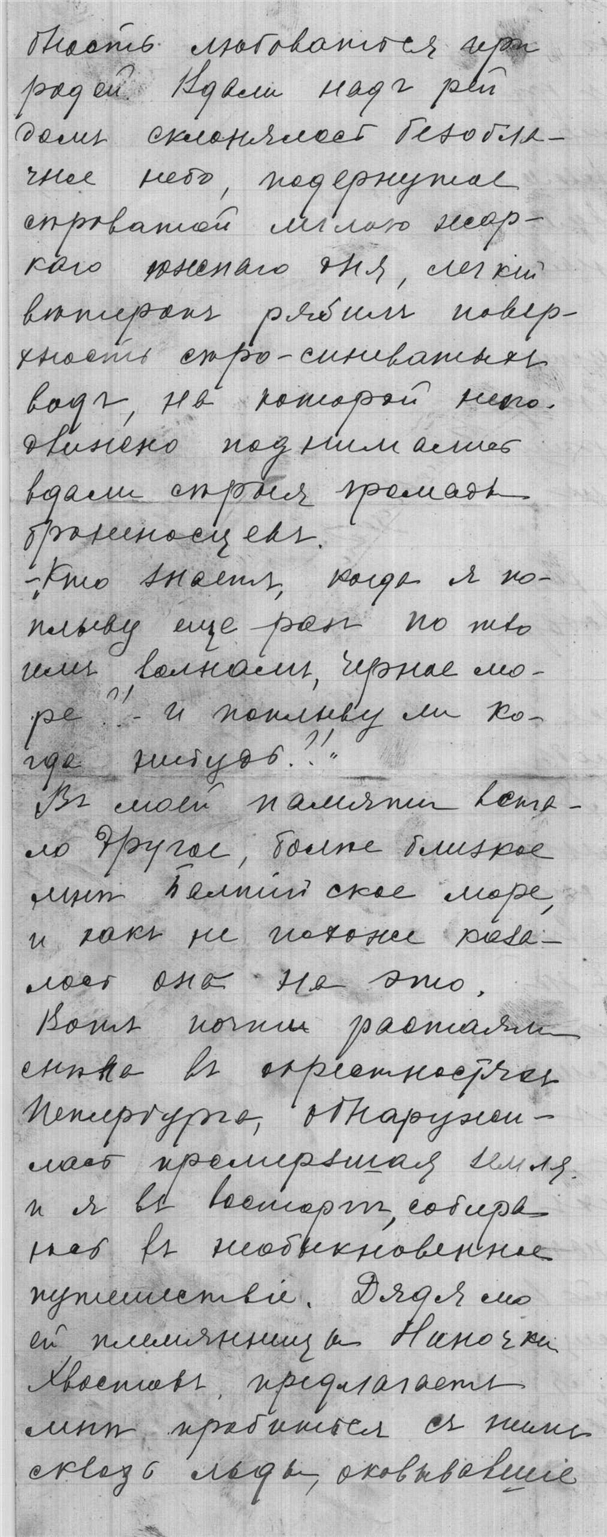 бность любоваться при
родой. Вдали надъ рей
домъ склонялось безобла-
чное небо, подернутое
сѣроватой мглою жар-
каго южнаго дня, легкій
вѣтерокъ рябилъ повер-
хность сѣро-синеватыхъ
водъ, на которой непо-
движно поднимались
вдали сѣрыя громады
броненосцевъ.
-„Кто знаетъ, когда я по-
плыву еще разъ по тво
имъ волнамъ, Черное мо-
ре?!- и поплыву ли ко-
гда нибудь?!“
Въ моей памяти вста-
ло другое, болѣе близкое
мнѣ Балтійское море,
и такъ не похоже каза-
лось оно на это.
Вотъ почти растаяли
снѣга въ окрестностяхъ
Петербурга, обнаружи-
лась промерзшая земля.
и я въ восторгѣ, собира
юсь въ необыкновенное
путешествіе. Дядя мо
ей племянницы Ниночки
Хвостовъ, предлагаетъ
мнѣ пробиться съ нимъ
сквозь льды, оковывавшіе